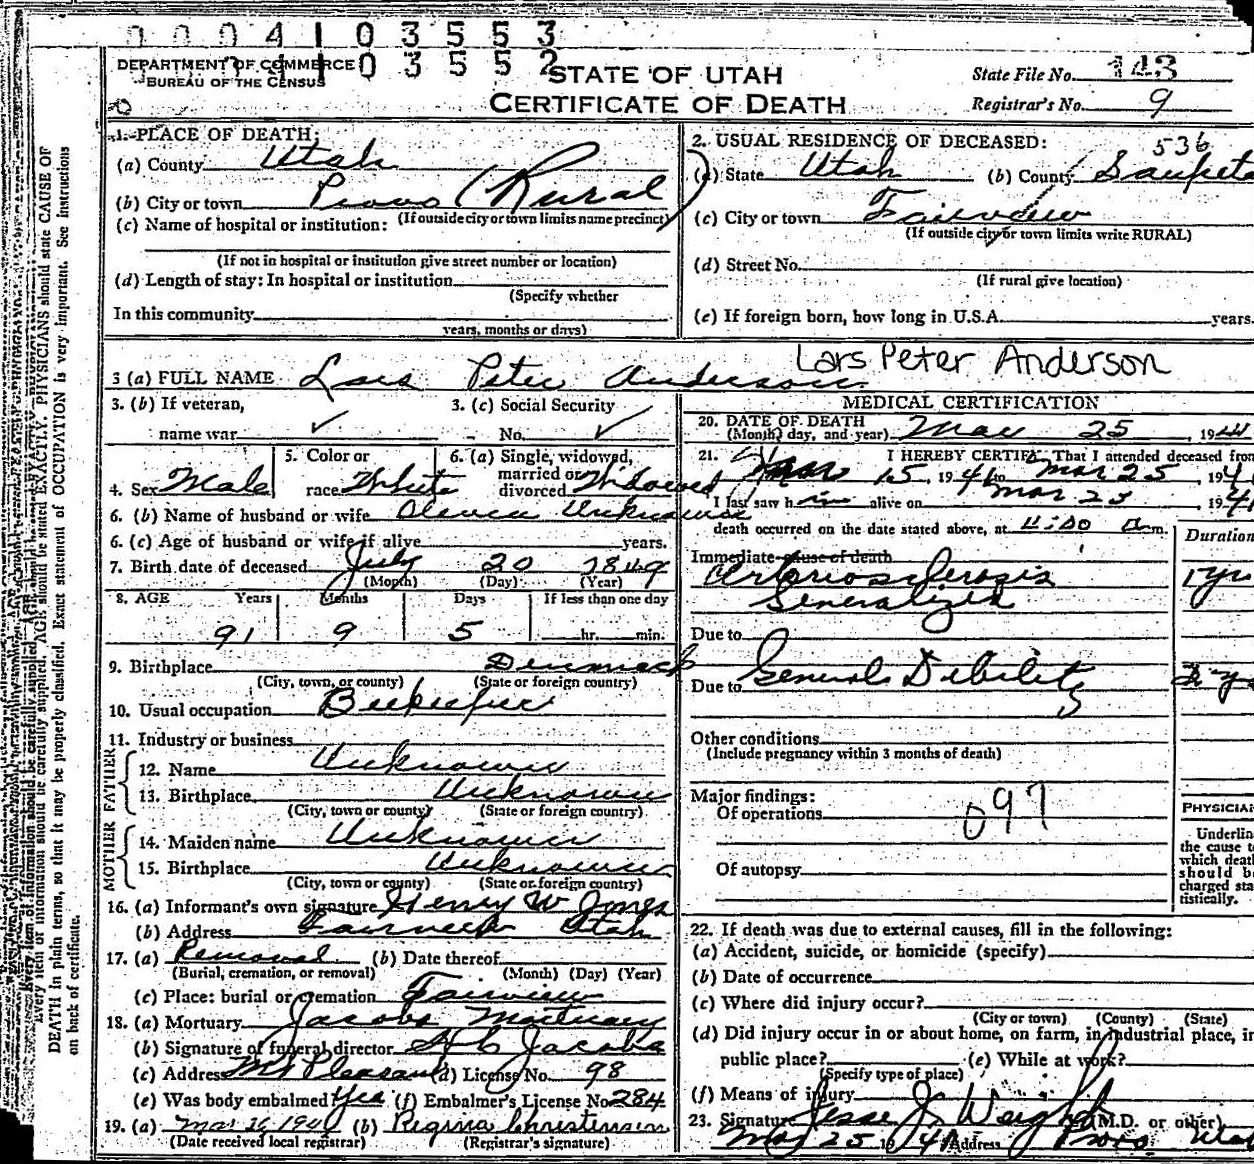 0 0 0 4 1 0 3 5 5 3
0 3 5 5 2
DEPARTMENT OF COMMERCE
BUREAU OF THE CENSUS
STATE OF UTAH
CERTIFICATE OF DEATH
State File No. 143
Registrar's No. 9
1. PLACE OF DEATH:
(a) County Utah
(b) City or town Provo (Rural)
(If outside city or town limits name precinct)
(c) Name of hospital or institution:
(If not in hospital or institution give street number or location)
(d) Length of stay: In hospital or institution
(Specify whether
In this community
years, months or days)
2. USUAL RESIDENCE OF DECEASED:
536
(a) State Utah (b) County Sanpete
(c) City or town Fairview
(If outside city or town limits write RURAL)
(d) Street No.
(If rural give location)
(e) If foreign born, how long in U.S.A. years.
Lars Peter Anderson
3 (a) FULL NAME Lars Peter Anderson
3. (b) If veteran, 3. (c) Social Security
name war ✓ No. ✓
5. Color or 6. (a) Single, widowed,
married or
4. Sex Male race White divorced Widowed
6. (b) Name of husband or wife Unknown
6. (c) Age of husband or wife if alive years.
7. Birth date of deceased July 20 1849
(Month) (Day) (Year)
8. AGE Years Months Days If less than one day
91 9 5 hr. min.
9. Birthplace Denmark
(City, town, or county) (State or foreign country)
10. Usual occupation Beekeeper
11. Industry or business
FATHER
12. Name Unknown
13. Birthplace Unknown
(City, town or county) (State or foreign country)
MOTHER
14. Maiden name Unknown
15. Birthplace Unknown
(City, town or county) (State or foreign country)
16. (a) Informant's own signature Henry W Jones
(b) Address Fairview Utah
17. (a) Removal (b) Date thereof
(Burial, cremation, or removal) (Month) (Day) (Year)
(c) Place: burial or cremation Fairview
18. (a) Mortuary Jacobs Mortuary
(b) Signature of funeral director Jacobs
(c) Address Mt Pleasant (d) License No. 98
(e) Was body embalmed Yes (f) Embalmer's License No. 284
19. (a) Mar 26 (b) Regina Christensen
(Date received local registrar) (Registrar's signature)
MEDICAL CERTIFICATION
20. DATE OF DEATH
(Month, day, and year) Mar 25, 194
21. I HEREBY CERTIFY, That I attended deceased from
Mar 15, 1941 to Mar 25, 194
I last saw him alive on Mar 23 194
death occurred on the date stated above, at 11:00 a m.
Duration
Immediate cause of death
Arteriosclerosis 1 yr
Generalized
Due to
Due to General Debility
Other conditions
(Include pregnancy within 3 months of death)
Major findings:
Of operations
097
Of autopsy
PHYSICIAN
Underline
the cause to
which death
should be
charged sta-
tistically.
22. If death was due to external causes, fill in the following:
(a) Accident, suicide, or homicide (specify)
(b) Date of occurrence
(c) Where did injury occur?
(City or town) (County) (State)
(d) Did injury occur in or about home, on farm, in industrial place, in
public place? (e) While at work?
(Specify type of place)
(f) Means of injury
23. Signature Jesse J. Weight (M.D. or other)
Mar 25 1941 Address Provo Utah
Every item of information should be carefully supplied. AGE should be stated EXACTLY. PHYSICIANS should state CAUSE OF
DEATH in plain terms, so that it may be properly classified. Exact statement of OCCUPATION is very important. See instructions
on back of certificate.